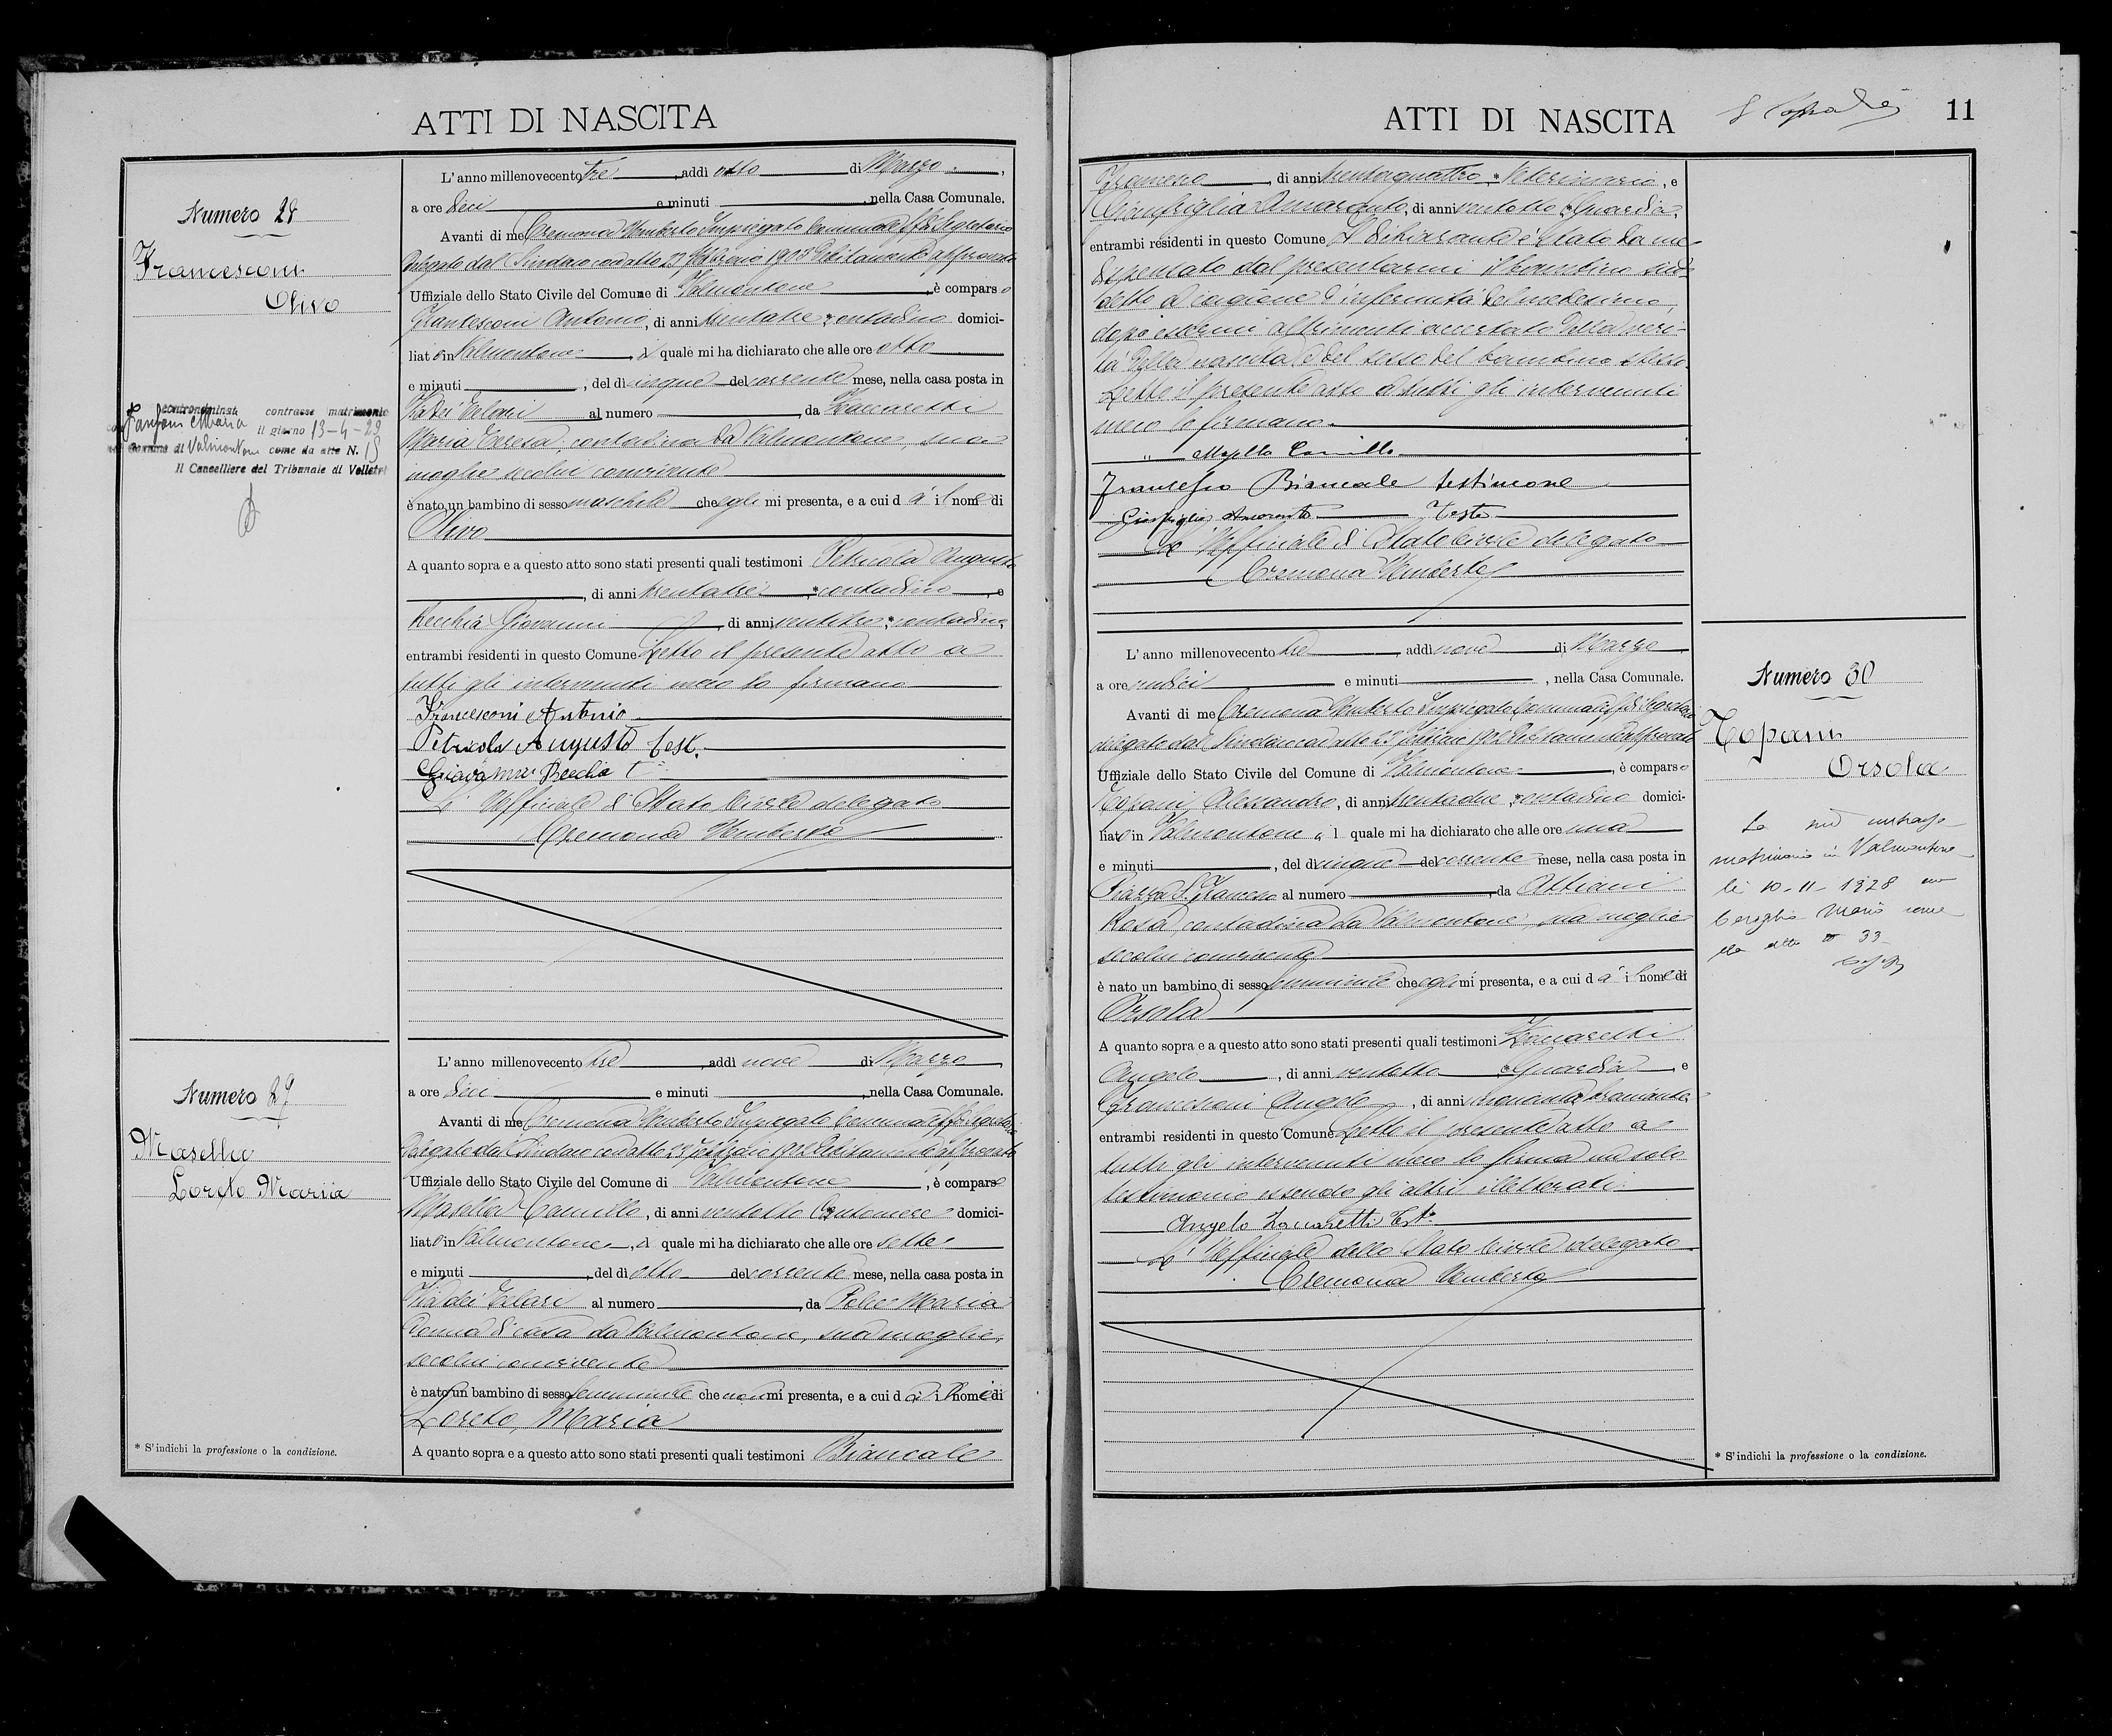 ATTI DI NASCITA
Numero 28
Francesconi
Olivo
contronominato contrasse matrimonio
Maria il giorno 13-4-29
di Valmontone come da atto N. 15
Il Cancelliere del Tribunale di Velletri
L'anno millenovecento tre, addì otto di Marzo,
a ore dieci e minuti, nella Casa Comunale.
Avanti di me Cremona Umberto Impiegato Comunale ff di Segretario
delegato dal Sindaco con atto 23 Febbraio 1903 debitamente approvato
Uffiziale dello Stato Civile del Comune di Valmontone, è comparso
Francesconi Antonio, di anni trentatre, * contadino domici-
liato in Valmontone, il quale mi ha dichiarato che alle ore otto
e minuti, del dì cinque del corrente mese, nella casa posta in
Via dei Telari al numero, da Zaccaretti
Maria Teresa, contadina da Valmontone, sua
moglie secolui convivente
è nato un bambino di sesso maschile che egli mi presenta, e a cui dà il nome di
Olivo
A quanto sopra e a questo atto sono stati presenti quali testimoni Petricola Augusto
, di anni trentatre, * contadino, e
Recchia Giovanni, di anni ventitre, * contadino,
entrambi residenti in questo Comune. Letto il presente atto a
tutti gli intervenuti meco lo firmano
Francesconi Antonio
Petricola Augusto test.
Giovanni Recchia t
L'Uffiziale di Stato Civile delegato
Cremona Umberto
Numero 29
Masella
Loreto Maria
L'anno millenovecento tre, addì nove di Marzo,
a ore dieci e minuti, nella Casa Comunale.
Avanti di me Cremona Umberto Impiegato Comunale ff di Segretario
delegato dal Sindaco con atto 23 Febbraio 1902 debitamente approvato
Uffiziale dello Stato Civile del Comune di Valmontone, è comparso
Masella Camillo, di anni ventotto domici-
liato in Valmontone, il quale mi ha dichiarato che alle ore sette
e minuti, del dì otto del corrente mese, nella casa posta in
Via dei Telari al numero, da Maria
donna di casa da Valmontone, sua moglie,
secolui convivente
è nato un bambino di sesso femminile che non mi presenta, e a cui dà il nome di
Loreto, Maria
A quanto sopra e a questo atto sono stati presenti quali testimoni Biancale
* S'indichi la professione o la condizione.
ATTI DI NASCITA
11
Francesco, di anni trentaquattro * Veterinario, e
Gianfriglia Amaranto, di anni ventotto * Guardia,
entrambi residenti in questo Comune. Il dichiarante è stato da me
dispensato dal presentarmi il bambino sud-
detto a cagione d'infermità del medesimo,
dopo essermi altrimenti accertato della veri-
tà della nascita e del sesso del bambino stesso.
Letto il presente atto a tutti gli intervenuti
meco lo firmano.
Masella Camillo
Francesco Biancale testimone
Gianfriglia Amaranto Teste
L'Uffiziale di Stato Civile delegato
Cremona Umberto
L'anno millenovecento tre, addì nove di Marzo,
a ore undici e minuti, nella Casa Comunale.
Avanti di me Cremona Umberto Impiegato Comunale ff di Segretario
delegato dal Sindaco con atto 23 Febbraio 1902 debitamente approvato
Uffiziale dello Stato Civile del Comune di Valmontone, è comparso
Topani Alessandro, di anni trentadue, * contadino domici-
liato in Valmontone, il quale mi ha dichiarato che alle ore una
e minuti, del dì cinque del corrente mese, nella casa posta in
Piazza S. Francesco al numero, da Attiani
Rosa, contadina da Valmontone, sua moglie
secolui convivente
è nato un bambino di sesso femminile che egli mi presenta, e a cui dà il nome di
Orsola
A quanto sopra e a questo atto sono stati presenti quali testimoni Zaccaretti
Angelo, di anni ventotto * Guardia, e
Francesconi Angelo, di anni cinquanta,
entrambi residenti in questo Comune. Letto il presente atto a
tutti gli intervenuti meco lo firma un solo
testimonio essendo gli altri illetterati.
Angelo Zaccaretti Te
L'Uffiziale dello Stato Civile delegato
Cremona Umberto
Numero 30
Topani
Orsola
La
matrimonio in Valmontone
li 10-11-1928 con
Mario come
da atto n 33
* S'indichi la professione o la condizione.